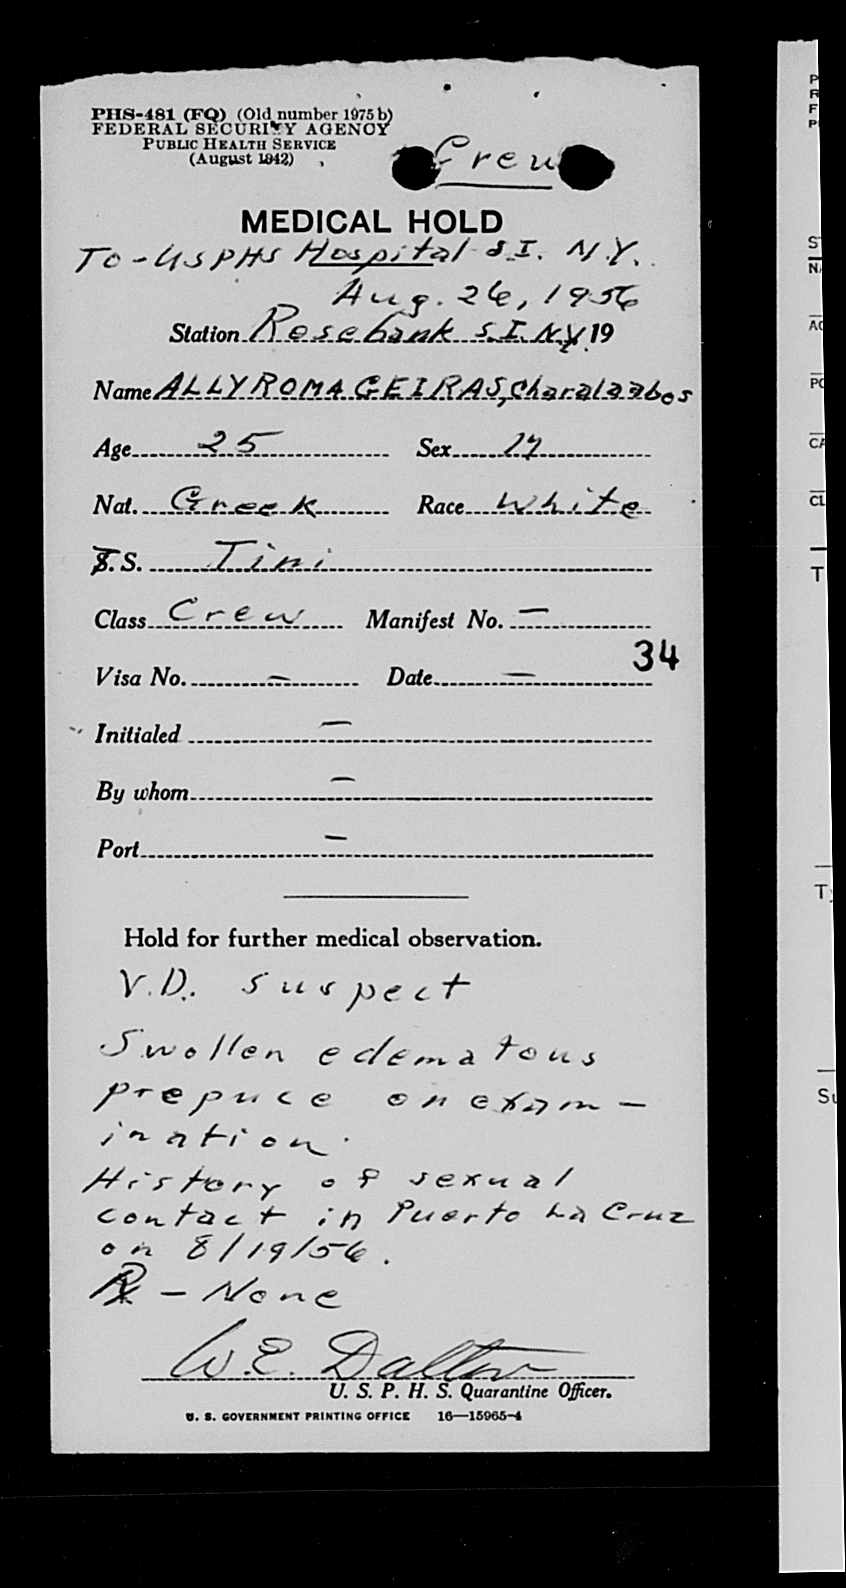 PHS-481 (FQ) (Old number 1975b)
FEDERAL SECURITY AGENCY
PUBLIC HEALTH SERVICE
(August 1942)
Crew
MEDICAL HOLD
To - USPHS Hospital S.I. N.Y.
Aug. 26, 1956
Station Rosebank S.I. N.Y. 19
Name ALLYROMAGEIRAS, Charalaabos
Age 25 Sex M
Nat. Greek Race White
T.S. Tini
Class Crew Manifest No. —
34
Visa No. — Date —
Initialed —
By whom —
Port —
Hold for further medical observation.
V.D. suspect
Swollen edematous
prepuce on exam-
ination.
History of sexual
contact in Puerto La Cruz
on 8/19/56.
Rx - None
W.E. Dalton
U. S. P. H. S. Quarantine Officer.
U. S. GOVERNMENT PRINTING OFFICE 16—15965-4